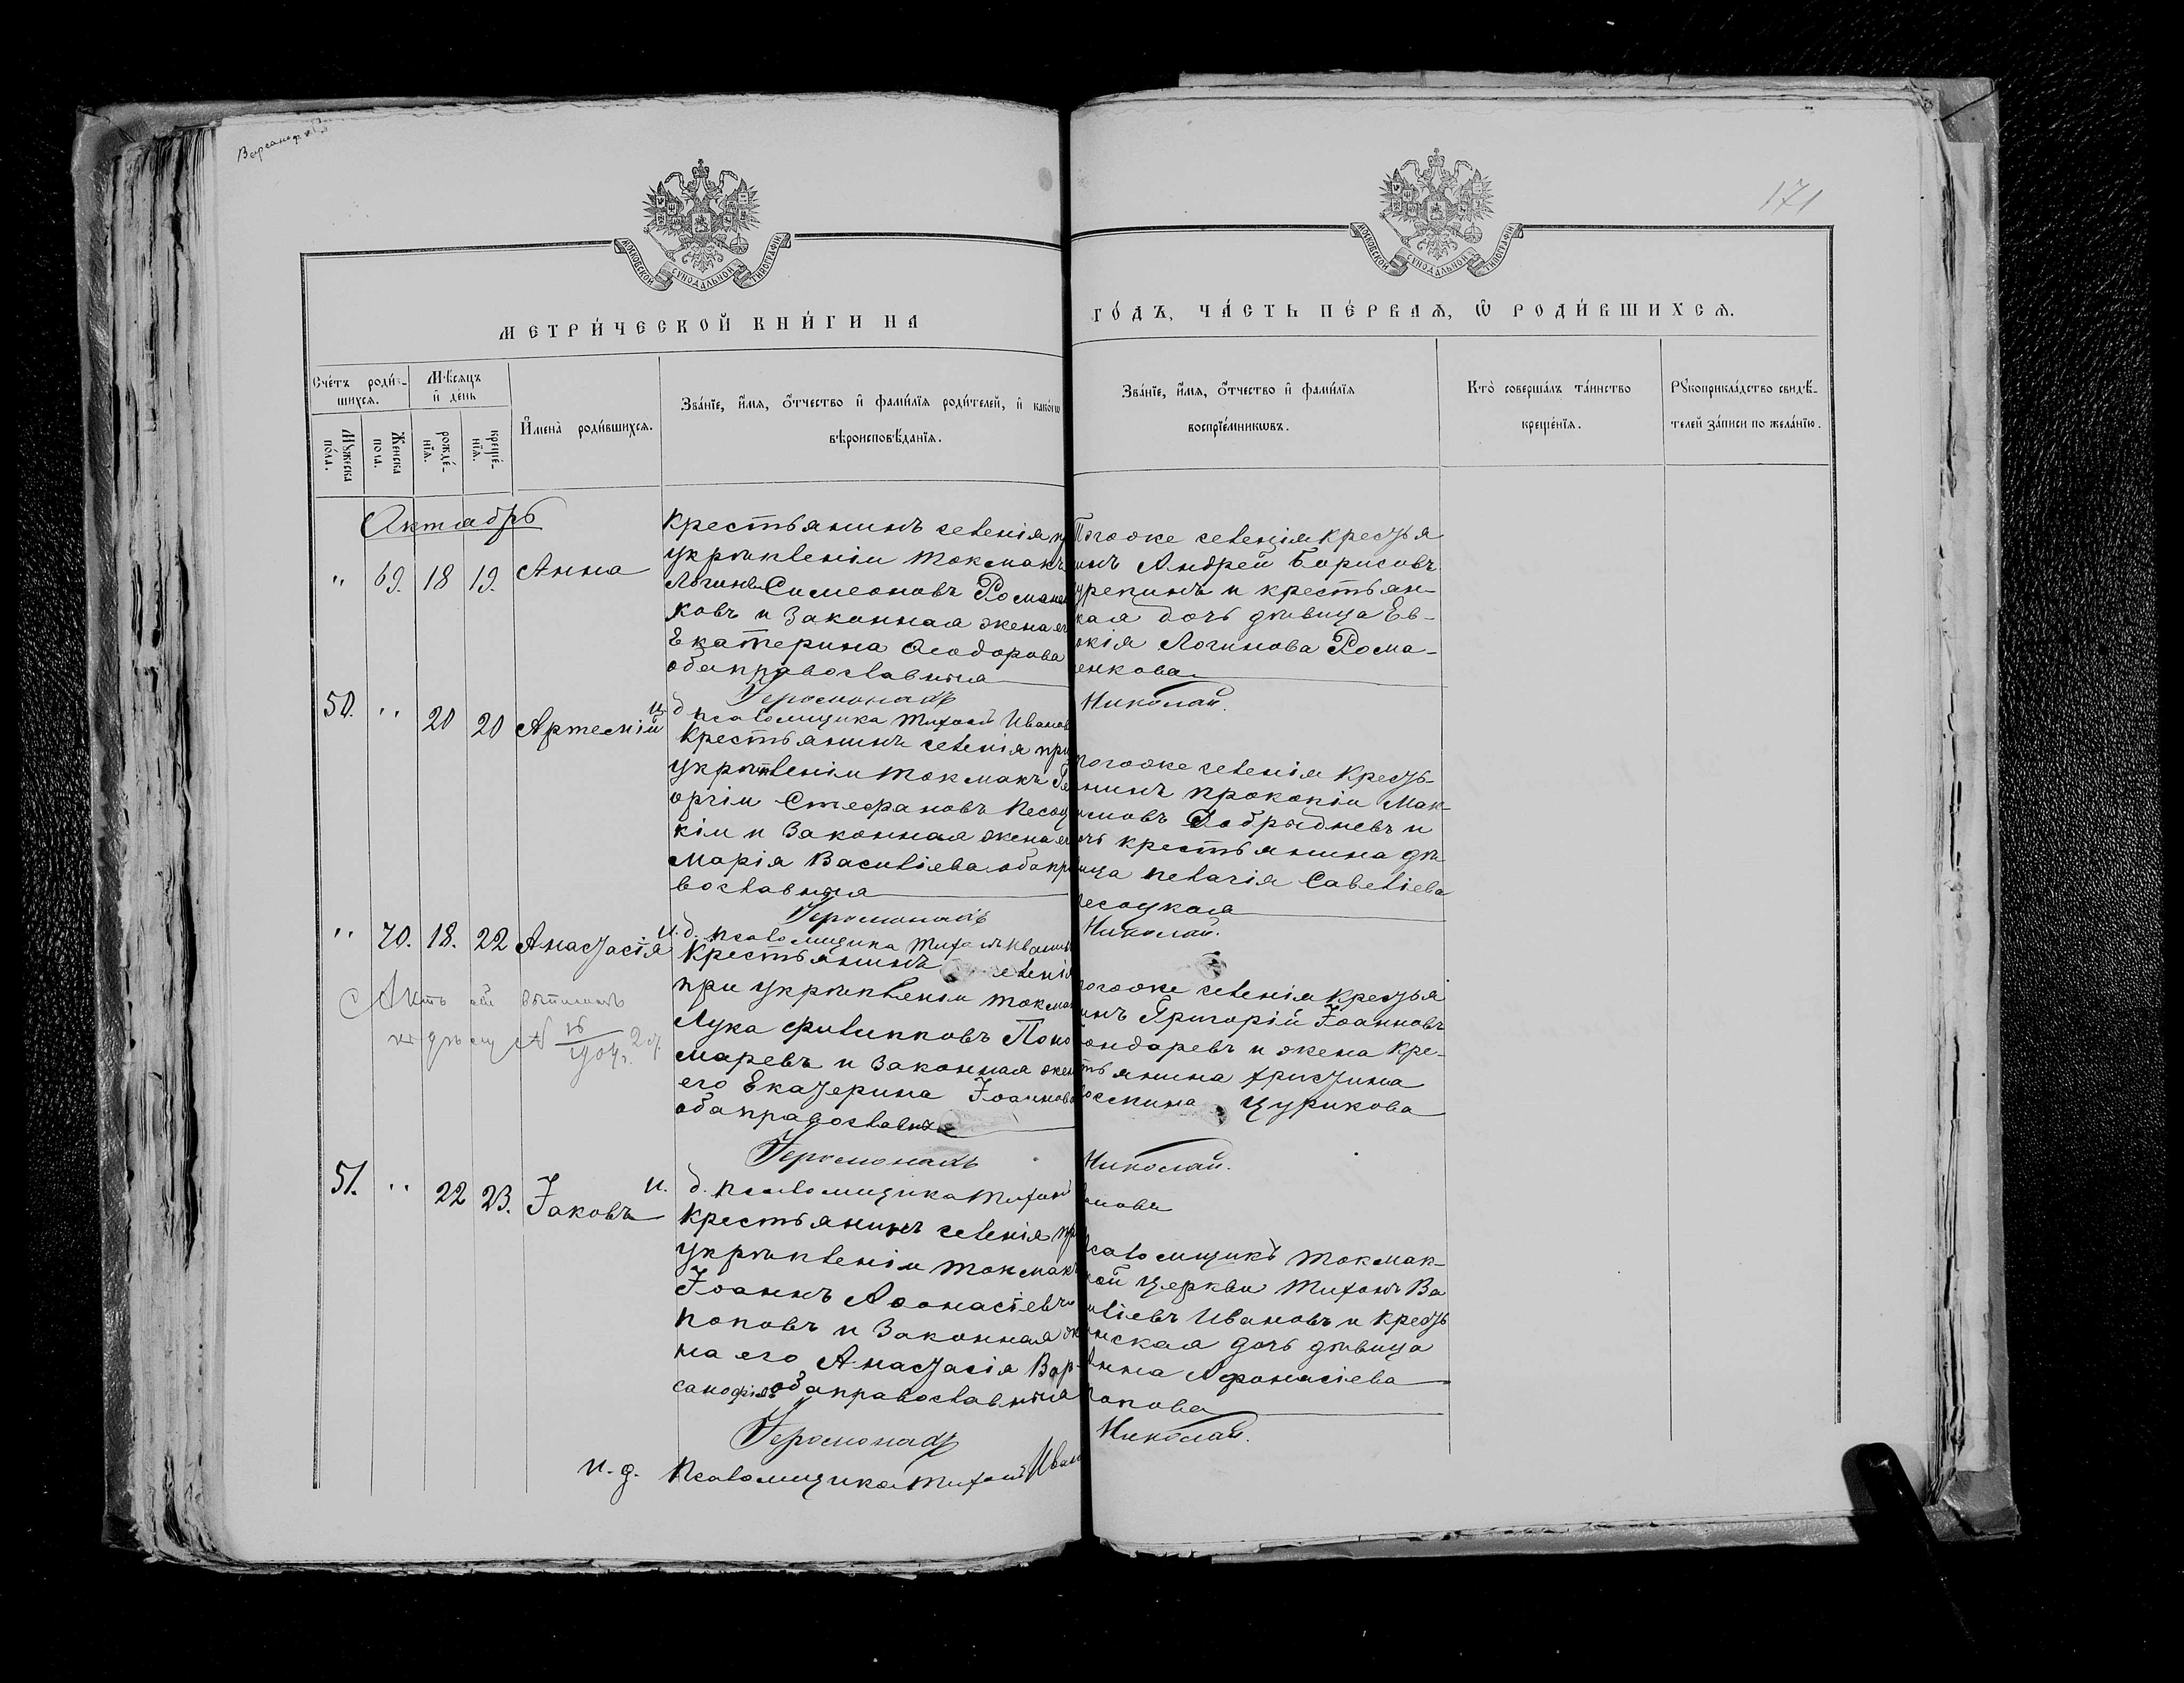 171
МОСКОВСКОЙ СѴНОДАЛЬНОЙ ТИПОГРАФІИ
МОСКОВСКОЙ СѴНОДАЛЬНОЙ ТИПОГРАФІИ
МЕТРИ́ЧЕСКОЙ КНИ́ГИ НА
ГО́ДЪ, ЧА́СТЬ ПЕ́РВАѦ, Ѡ҆ РОДИ́ВШИХСѦ.
Сче́тъ роди́в-
шихсѧ.
Мꙋ́жеска по́ла.
Же́нска по́ла.
Мѣ́сѧцъ и҆ де́нь
рожде́-нїѧ.
креще́-нїѧ.
И҆мена̀ роди́вшихсѧ.
Зва́нїе, и҆́мѧ, ѻ҆́тчество и҆ фами́лїѧ роди́телей, и҆ како́гѡ
вѣроисповѣ́данїѧ.
Зва́нїе, и҆́мѧ, ѻ҆́тчество и҆ фами́лїѧ
воспрїе́мникѡвъ.
Кто̀ соверша́лъ та́инство
креще́нїѧ.
Рꙋкоприкла́дство свидѣ́-
телей за́писи по жела́нїю.
Октябрь
" 69. 18 19. Анна
Крестьянинъ селенія
укрѣпленіи Токмакъ
Логинъ Симеоновъ Романен
ковъ и законная жена ег
Екатерина Ѳеодорова
оба православныя
Тогоже селенія крестья
инъ Андрей Борисовъ
урепинъ и крестьян-
кая дочь дѣвица Ев-
окія Логинова Рома-
енкова
Іеромонахъ
Николай.
и. д. псаломщика Тихон Иванов
50. " 20 20 Артемій
Крестьянинъ селенія при
укрѣпленіи Токмакъ Ге
оргіи Стефановъ Песоц
кіи и законная жена ег
Марія Василіева оба пр
вославныя
тогоже селенія кресть
нинъ Прокопіи Мак-
имовъ Добрыдневъ и
очь крестьянина дѣ
ица Пелагія Савеліева
есоцкая
Іеромонахъ
Николай.
и. д. псаломщика Тихон Иванов
" 70. 18. 22 Анастасія
Крестьянинъ селенія
при укрѣпленіи Токма
Лука Филипповъ Поно
маревъ и законная жен
его Екатерина Іоаннова
оба православныя
огоже селенія крестья
инъ Григорій Іоанновъ
ондаревъ и жена кре-
тьянина Христина
Цурикова
Актъ сей выписанъ
Іеромонахъ
Николай.
и. д. псаломщика Тихон
анова
51. " 22 23. Іаковъ
Крестьянинъ селенія пр
укрѣпленіи Токмакъ
Іоаннъ Аѳонасіевъ
Поповъ и законная же
на его Анастасія Вар-
санофіева оба православныя
саломщикъ Токмак-
кой церкви Тихонъ Ва
иліевъ Ивановъ и кресть
нская дочь дѣвица
Анна Афонасіева
Попова
Іеромонахъ
Николай.
и. д. Псаломщика Тихон Иван